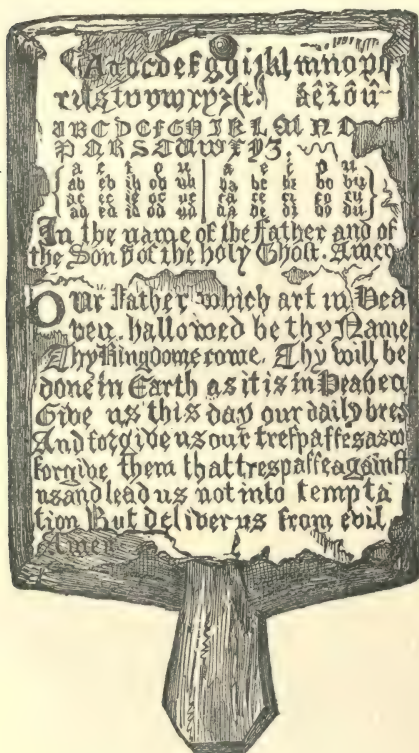 Aabcdefgghijklmnopq
rsstuvwxyz&t. âêîôû
ABCDEFGHIKLMNO
PQRSTUWXYZ.
a e i o u a e i o u
ab eb ib ob ub ba be bi bo bu
ac ec ic oc uc ca ce ci co cu
ad ed id od ud da de di do du
In the name of the Father and of
the Son & of the holy Ghost. Amen
Our Father which art in Hea
ven, hallowed be thy Name
Thy Kingdome come. Thy will be
done in Earth as it is in Heaven
Give us this day our daily bred
And forgive us our trespasses as we
forgive them that trespasse against
us and lead us not into tempta
tion But deliver us from evil
Amen